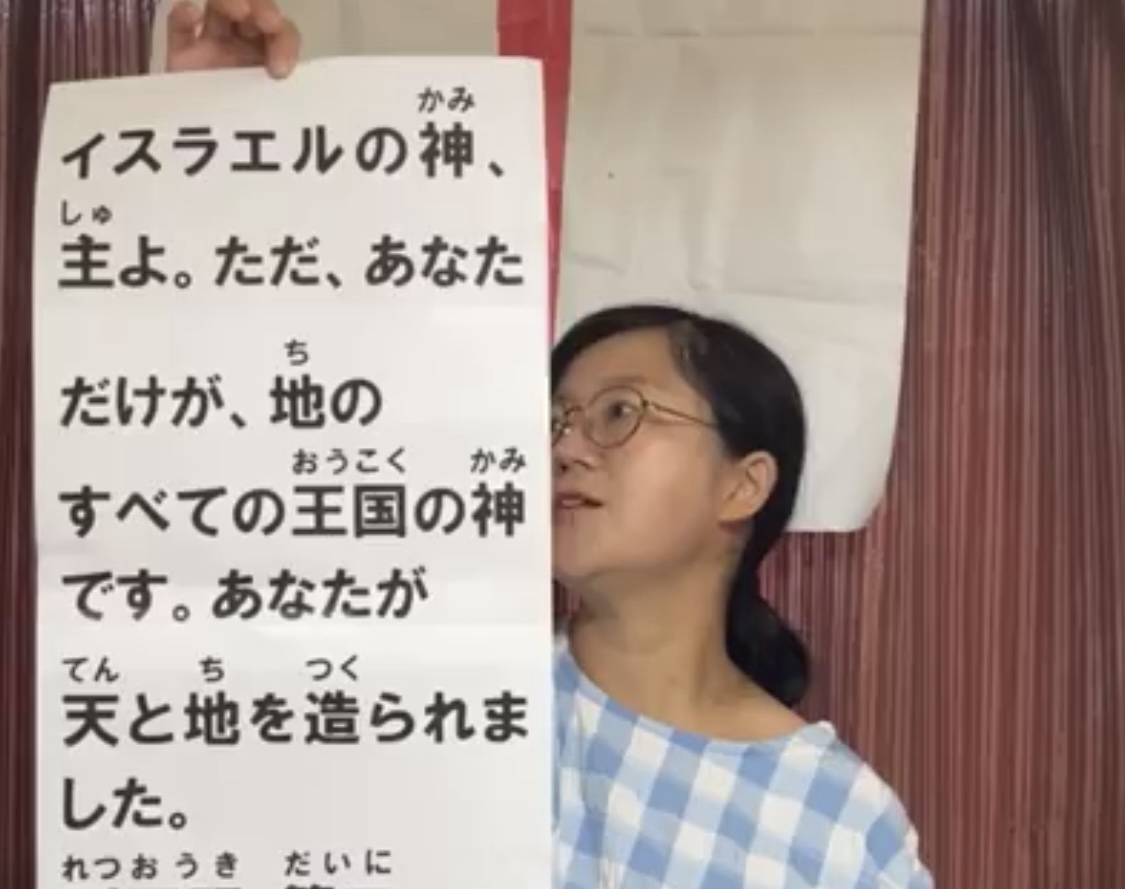 かみ
ィスラエルの神、
しゅ
主よ。ただ、あなた
ち
だけが、地の
おうこく かみ
すべての王国の神
です。あなたが
てん ち つく
天と地を造られま
した。
れつおうき だいに